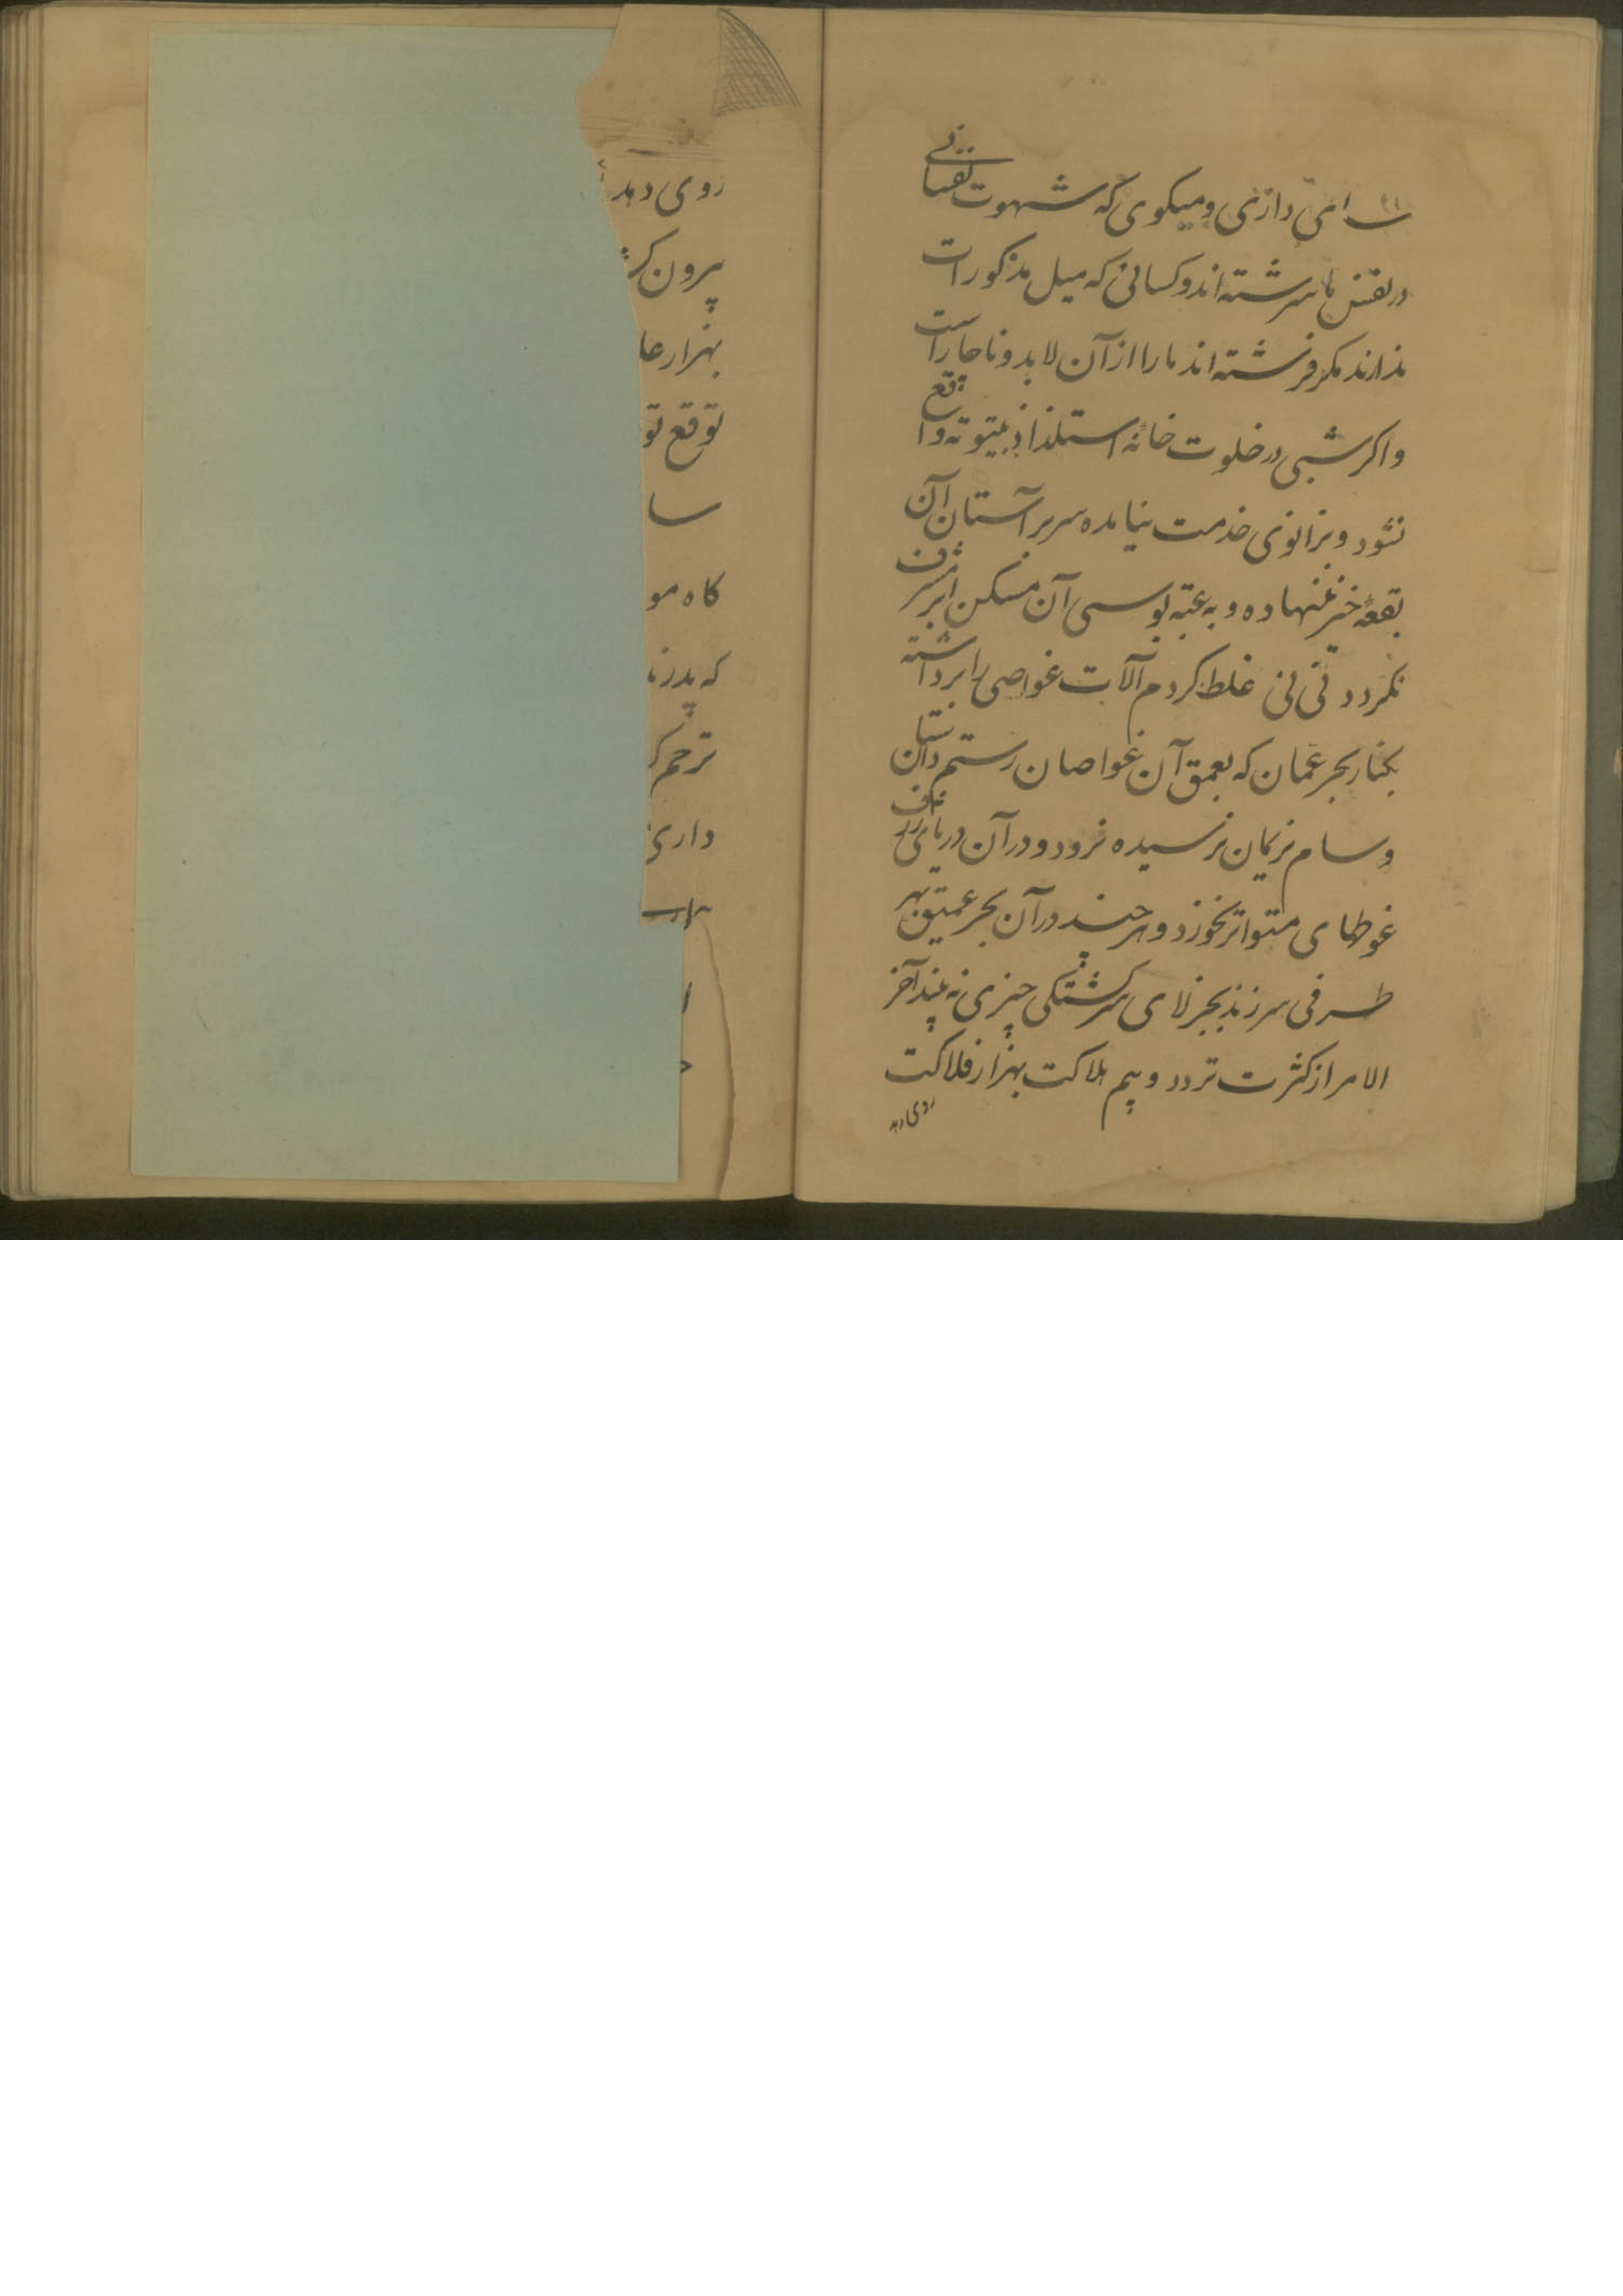 سامی داری و میکوی که شهوت نفسانی
در نفس ما سرشته اند و کسانی که میل مذکورات
ندارند مکر فرشته اند ما را از آن لابد و ناچار است
و اکر شبی در خلوت خانه استلذاذ بیتوته واقع
نشود و بزانوی خدمت نیامده سر بر آستان آن
بقعهٔ خیر ننهاده و به عتبه بوسی آن مسکن اشرف
نکردد نی نی غلط کردم آلات غواصی را برداشته
بکنار بحر عمان که بعمق آن غواصان رستم دستان
و سام نریمان نرسیده نرود و در آن دریای ژرف
غوطهای متواتر نخورد و هر چند در آن بحر عمیق بهر
طرفی سر زند بجز لای سرکشتکی چیزی نه بیند آخر
الامر از کثرت تردد و بیم هلاکت بهزار فلاکت
روی دهد
روی دهد
بیرون
بهزار
توقع
کاه
که پدر
ترحم
داری